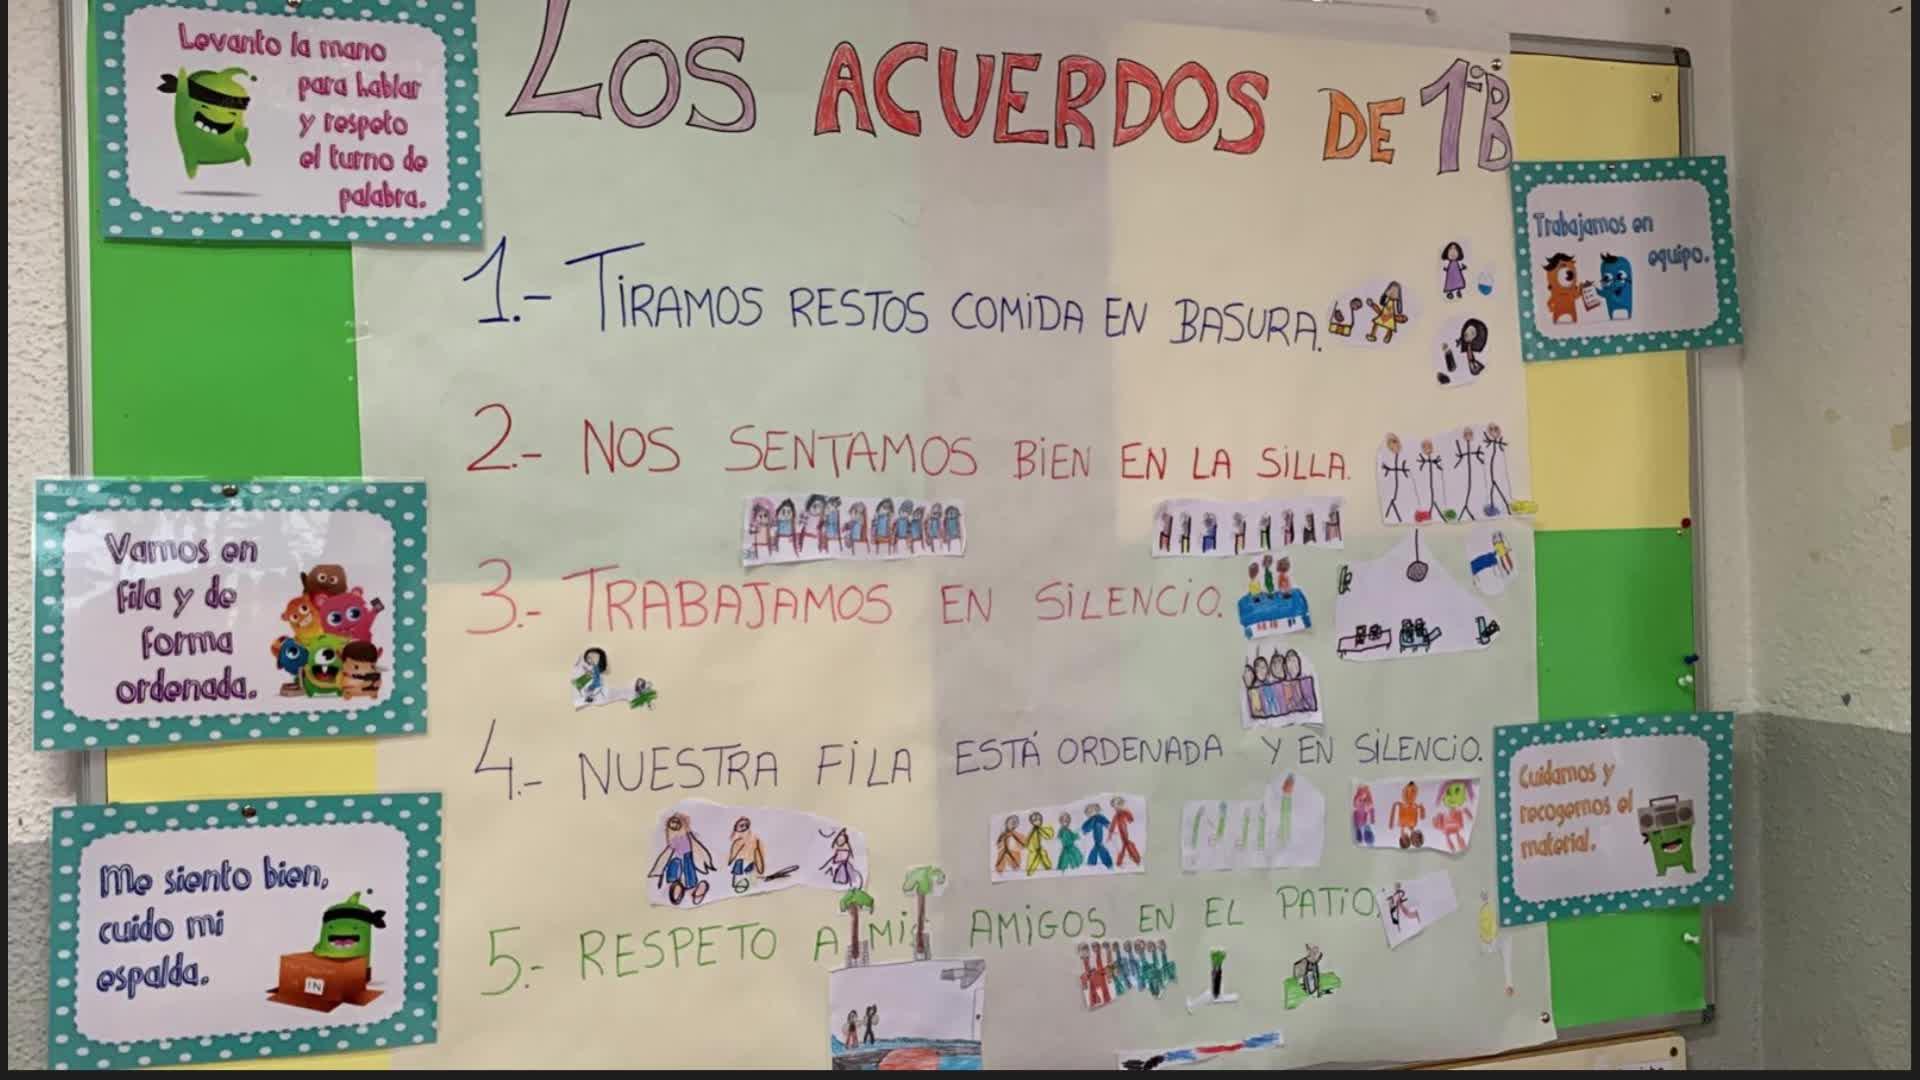 Levanto la mano
para hablar
y respeto
el turno de
palabra.
LOS ACUERDOS DE 1ºB
Trabajamos en
equipo.
1.- TIRAMOS RESTOS COMIDA EN BASURA.
2.- NOS SENTAMOS BIEN EN LA SILLA.
Vamos en
fila y de
forma
ordenada.
3.- TRABAJAMOS EN SILENCIO.
4.- NUESTRA FILA ESTÁ ORDENADA Y EN SILENCIO.
Cuidamos y
recogemos el
material.
Me siento bien,
cuido mi
espalda.
IN
5.- RESPETO A MIS AMIGOS EN EL PATIO.